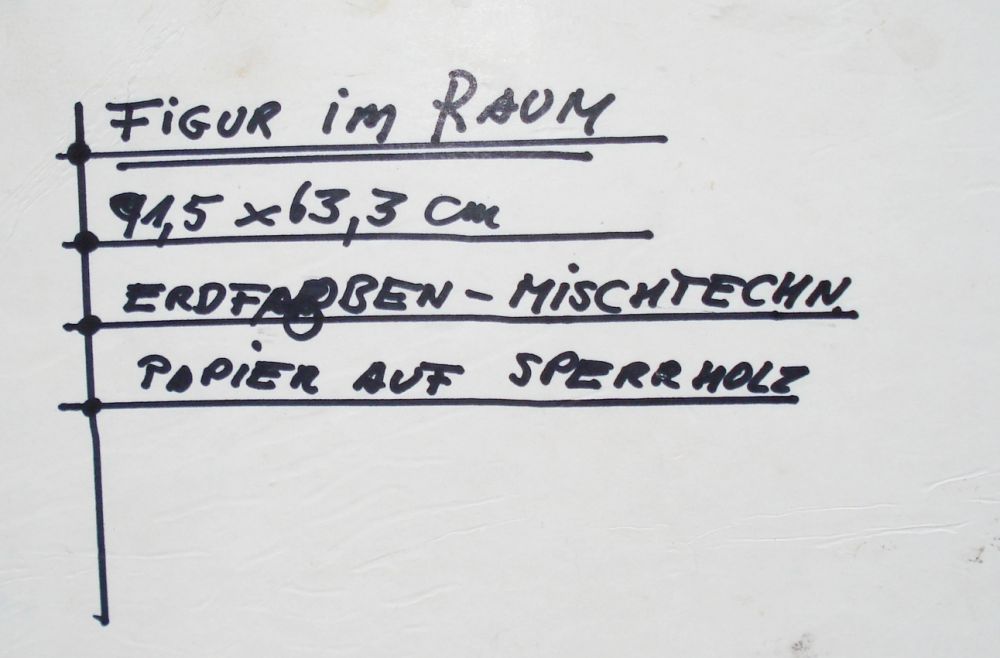 FiGUR im RAUM
91,5 x 63,3 cm
ERDFARBEN - MiSCHTECHN.
PAPiER AUF SPERRHOLZ